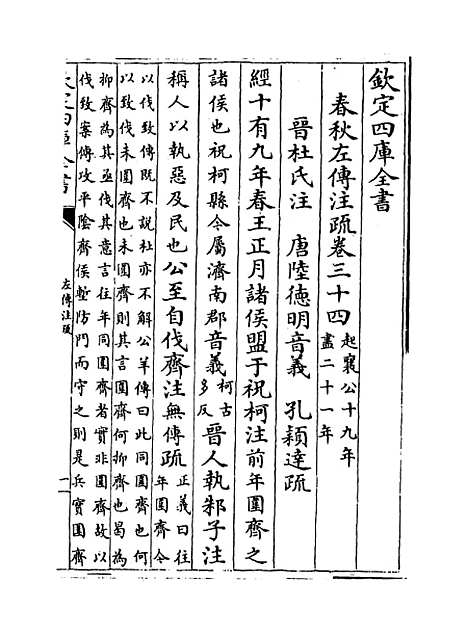 欽定四庫全書
春秋左傳注疏卷三十四
起襄公十九年
盡二十一年
晉杜氏注　唐陸德明音義　孔穎達疏
經十有九年春王正月諸侯盟于祝柯注前年圍齊之
諸侯也祝柯縣今屬濟南郡音義柯古多反晉人執邾子注
稱人以執惡及民也公至自伐齊注無傳疏正義曰往年圍齊今
以伐致傳既不說杜亦不解公羊傳曰此同圍齊也何
以致伐未圍齊也未圍齊則其言圍齊何抑齊也曷為
抑齊為其亟伐其意言往年同圍齊者實非圍齊故以
伐致案傳攻平陰齊侯塹防門而守之則是兵實圍齊
欽定四庫全書
左傳注疏
一